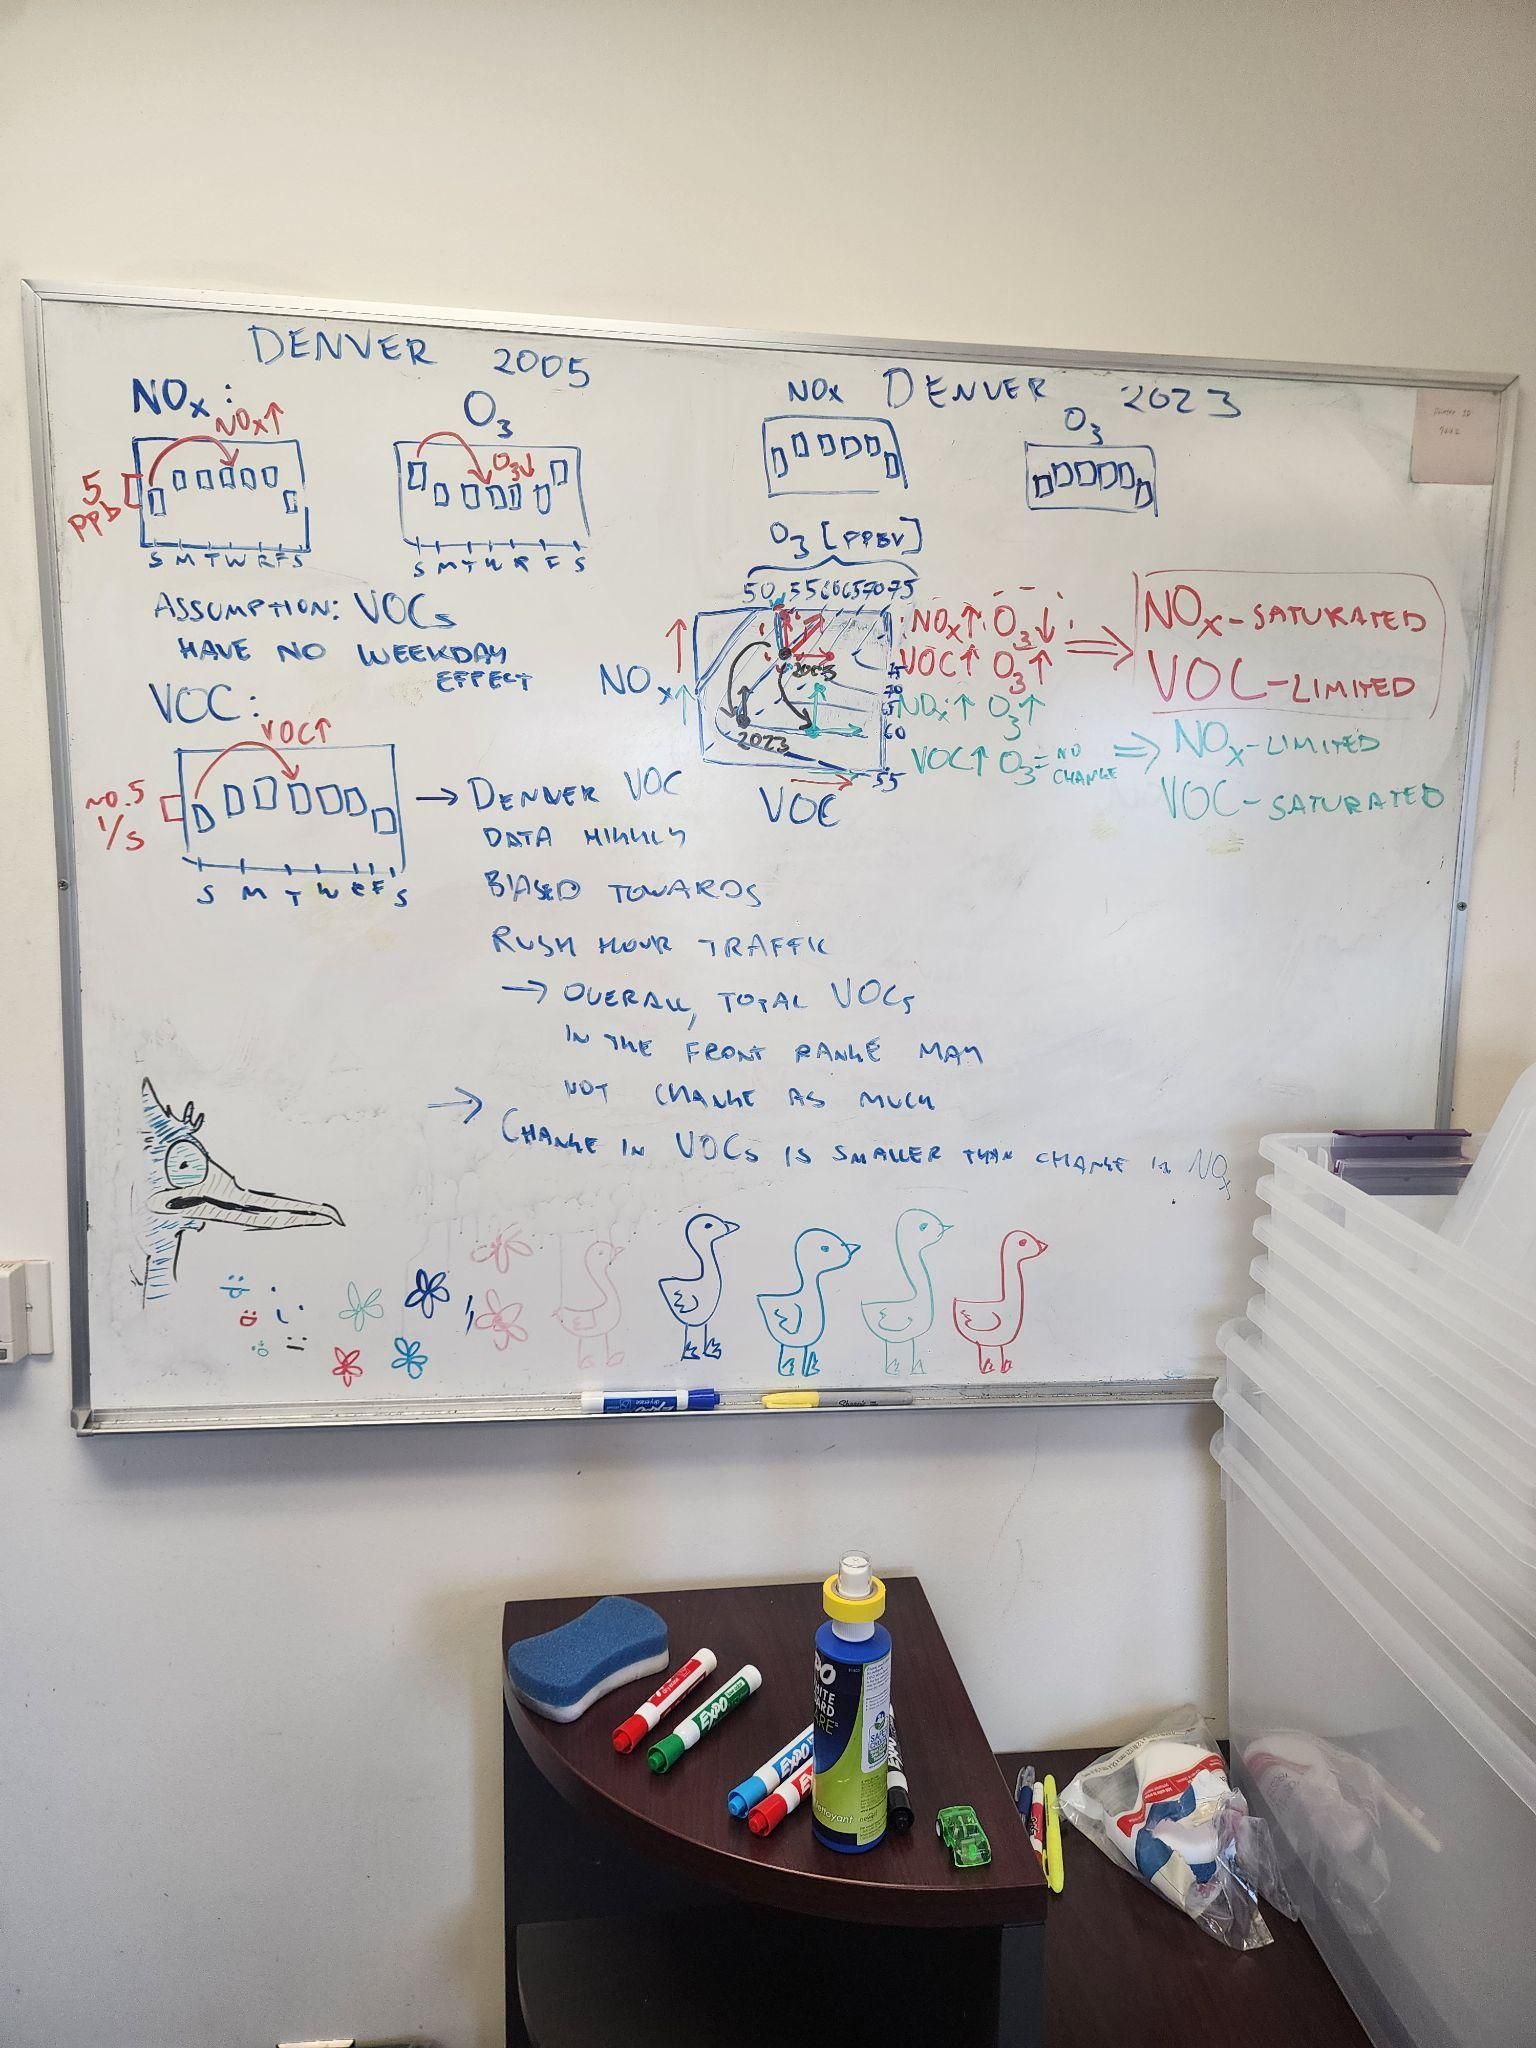 DENVER 2005
NOx:
NOx↑
5
ppb
S M T W R F S
O3
O3↓
S M T W R F S
ASSUMPTION: VOCs
HAVE NO WEEKDAY
EFFECT
VOC:
VOC↑
~0.5
1/S
S M T W R F S
→ DENVER VOC
DATA HIGHLY
BIASED TOWARDS
RUSH HOUR TRAFFIC
→ OVERALL, TOTAL VOCs
IN THE FRONT RANGE MAY
NOT CHANGE AS MUCH
→ CHANGE IN VOCs IS SMALLER THAN CHANGE IN NOx
DENVER 2023
NOx
O3
O3 [PPBV]
50 55 60 65 70 75
NOx
2005
2023
75
70
65
60
55
VOC
NOx↑ O3↓
VOC↑ O3↑
⇒ NOx-SATURATED
VOC-LIMITED
NOx↑ O3↑
VOC↑ O3 = NO CHANGE
⇒ NOx-LIMITED
VOC-SATURATED
EXPO
Sharpie
EXPO
EXPO
EXPO
nettoyant